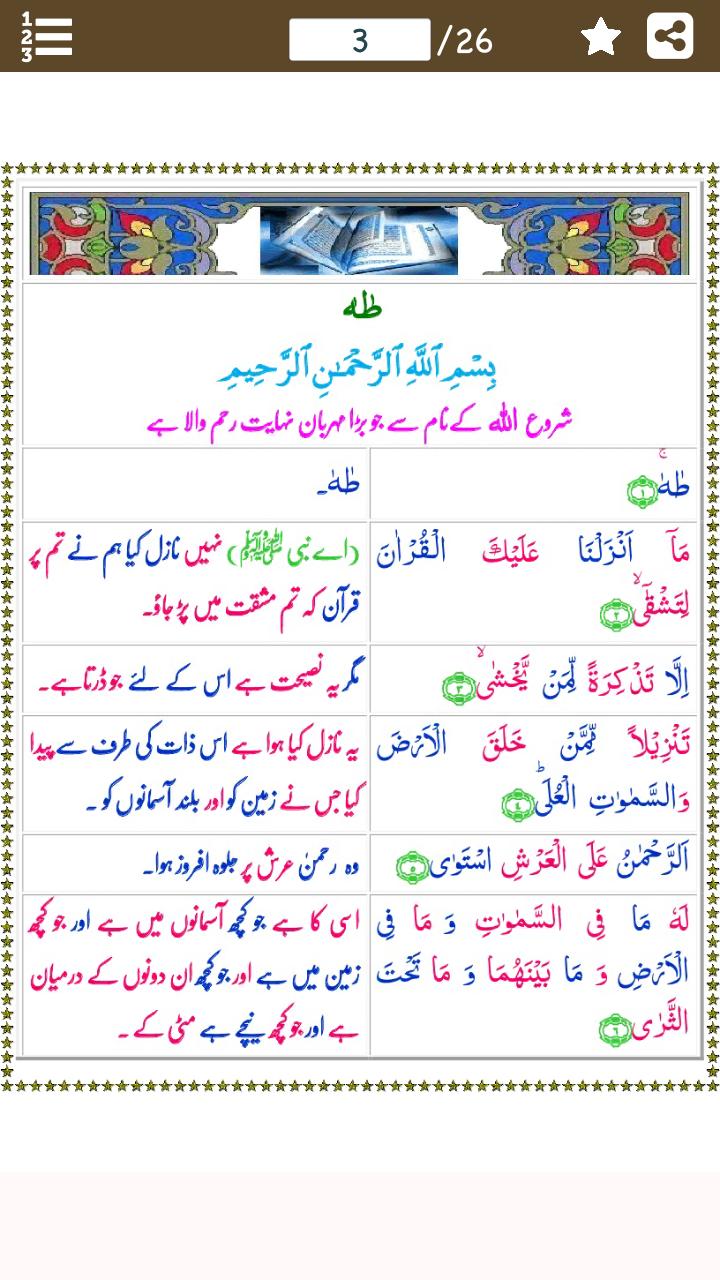 1
2
3
3
/26
طٰهٰ
بِسْمِ ٱللَّهِ ٱلرَّحْمَـٰنِ ٱلرَّحِيمِ
شروع اللہ کے نام سے جو بڑا مہربان نہایت رحم والا ہے
طٰهٰ ۚ ﴿۱﴾
طٰہٰ۔
مَاۤ اَنْزَلْنَا عَلَيْكَ الْقُرْاٰنَ
لِتَشْقٰٓى ۙ ﴿۲﴾
(اے نبی ﷺ) نہیں نازل کیا ہم نے تم پر
قرآن کہ تم مشقت میں پڑ جاؤ۔
اِلَّا تَذْكِرَةً لِّمَنْ يَّخْشٰى ۙ ﴿۳﴾
مگر یہ نصیحت ہے اس کے لئے جو ڈرتا ہے۔
تَنْزِيْلاً مِّمَّنْ خَلَقَ الْاَرْضَ
وَالسَّمٰوٰتِ الْعُلَى ؕ ﴿۴﴾
یہ نازل کیا ہوا ہے اس ذات کی طرف سے پیدا
کیا جس نے زمین کو اور بلند آسمانوں کو ۔
اَلرَّحْمٰنُ عَلَى الْعَرْشِ اسْتَوٰى ﴿۵﴾
وہ رحمنٰ عرش پر جلوہ افروز ہوا۔
لَهٗ مَا فِى السَّمٰوٰتِ وَ مَا فِى
الْاَرْضِ وَ مَا بَيْنَهُمَا وَ مَا تَحْتَ
الثَّرٰى ﴿۶﴾
اسی کا ہے جو کچھ آسمانوں میں ہے اور جو کچھ
زمین میں ہے اور جو کچھ ان دونوں کے درمیان
ہے اور جو کچھ نیچے ہے مٹی کے ۔